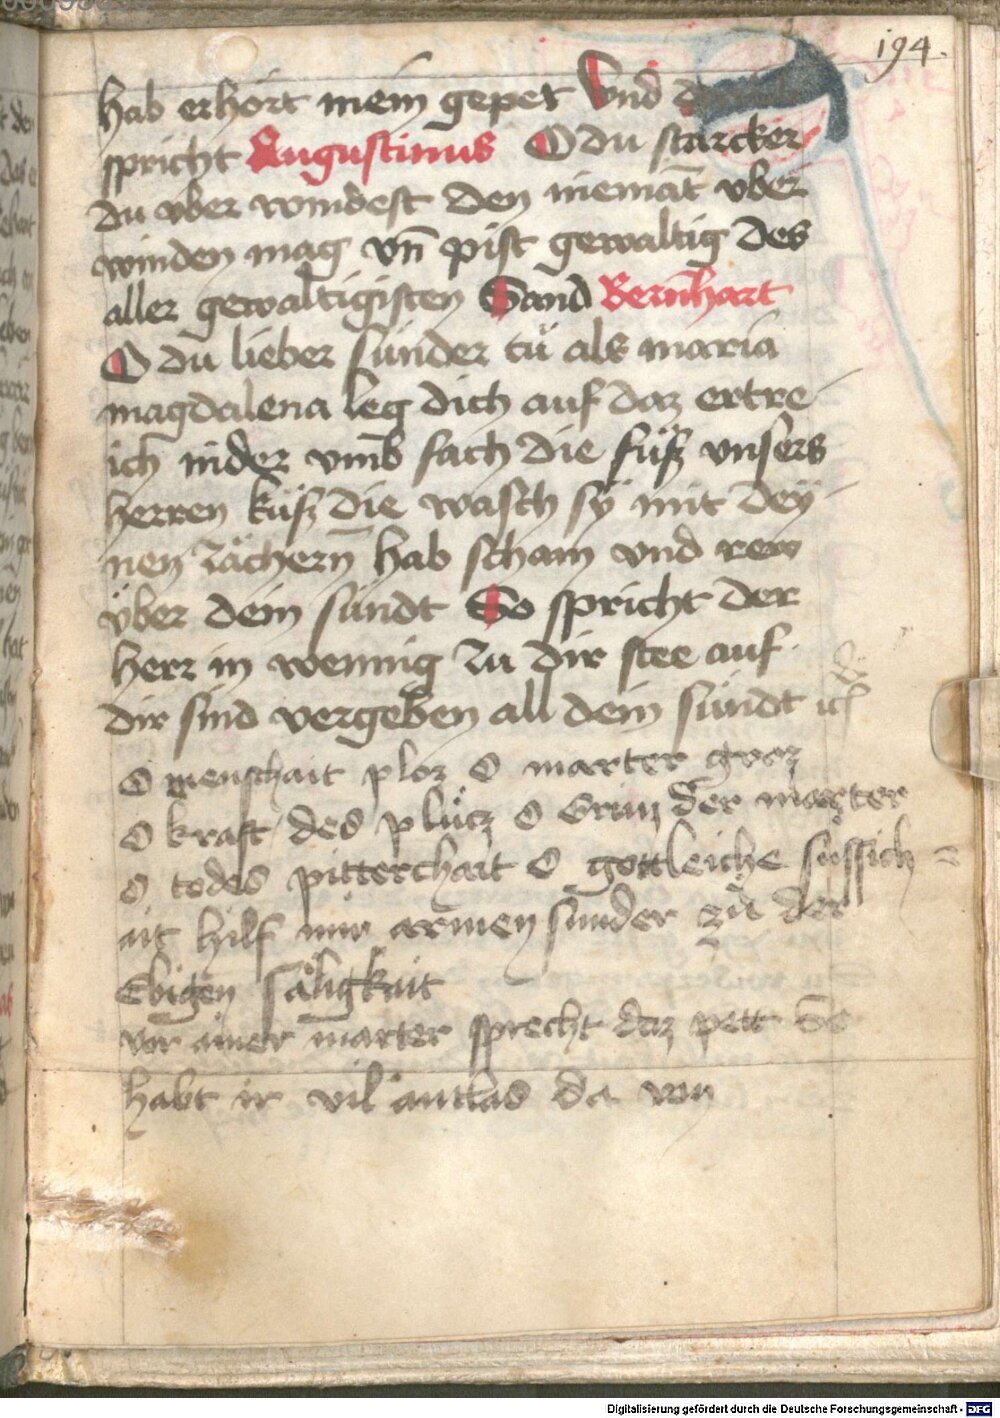 194.
hab erhört mein gepet Vnd
spricht Augustinus O du starcker
du vber windest den niemāt vber
winden mag vn̄ pist gewaltig des
aller gewaltigisten Sand Bernhart
O du lieber sünder tü als maria
magdalena leg dich auf daz ertre
ich nider vmb fach die füsz vnsers
herren küsz die wasch sy mit dey
nen zächern hab scham vnd rew
über dein sündt So spricht der
herr in wennig zu dir stee auf
dir sind vergeben all dein sündt
O menschait ploz O marter groz
O kraft des plütz O Grim der marter
O todes pitterchait O gottleiche süssich =
ait hilf mir armen sunder zü der
Ebigen säligkait
vor ainer marter sprecht daz pett So
habt ir vil antlas da von
Digitalisierung gefördert durch die Deutsche Forschungsgemeinschaft - DFG